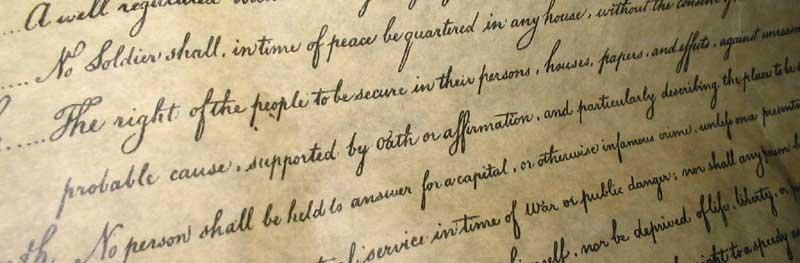 A well regulated
No Soldier shall, in time of peace be quartered in any house, without the consent
The right of the people to be secure in their persons, houses, papers, and effects, against unreaso
probable cause, supported by Oath or affirmation, and particularly describing the place to be
th. No person shall be held to answer for a capital, or otherwise infamous crime, unless on a presentm
service in time of War or public danger; nor shall any person b
self, nor be deprived of life, liberty, or
right to a speedy